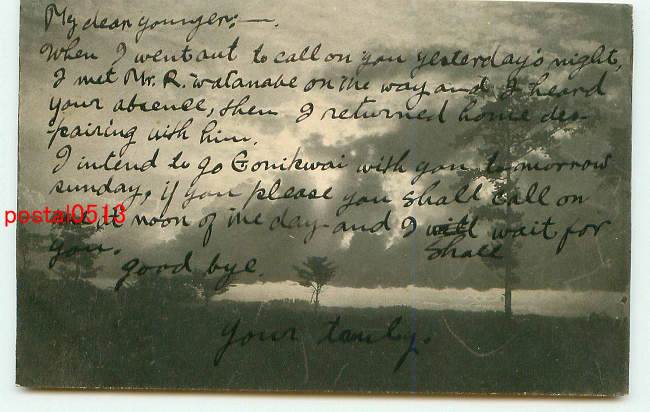 My dear younger:—.
When I went out to call on you yesterday's night,
I met Mr. R. Watanabe on the way and I heard
your absence, then I returned home des-
pairing with him.
I intend to go Gonikwai with you tomorrow
sunday, if you please you shall call on
me at noon of the day and I will wait for
shall
you.
good bye.
your
postal0513